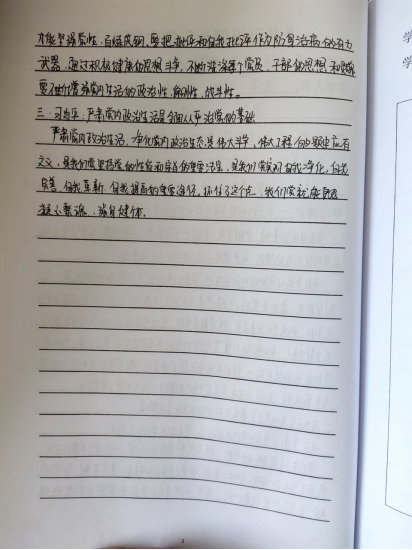 才能坚强党性、百炼成钢。要把批评和自我批评作为防身治病的有力
武器，通过积极健康的思想斗争，不断洗涤每个党员、干部的思想和灵魂
要不断增强党内生活的政治性、原则性、战斗性。
三、习近平：严肃党内政治生活是全面从严治党的基础
严肃党内政治生活、净化党内政治生态是伟大斗争、伟大工程的题中应有
之义，是我们党坚持党的性质和宗旨的重要法宝，是我们党实现自我净化、自我
完善、自我革新、自我提高的重要途径。抓住了这个点，我们党就能
凝心聚魂、强身健体。
3
学
学